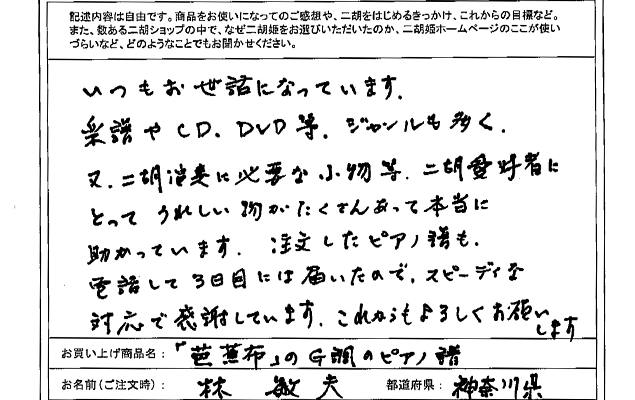 記述内容は自由です。商品をお使いになってのご感想や、二胡をはじめるきっかけ、これからの目標など。
また、数ある二胡ショップの中で、なぜ二胡姫をお選びいただいたのか、二胡姫ホームページのここが使い
づらいなど、どのようなことでもお聞かせください。
いつもお世話になっています.
楽譜やCD、DVD等、ジャンルも多く、
又、二胡演奏に必要な小物等、二胡愛好者に
とってうれしい物がたくさんあって本当に
助かっています. 注文したピアノ譜も、
電話して3日目には届いたので、スピーディな
対応で感謝しています. これからもよろしくお願い
します
お買い上げ商品名: 「芭蕉布」のG調のピアノ譜
お名前(ご注文時): 林 敏夫 都道府県: 神奈川県